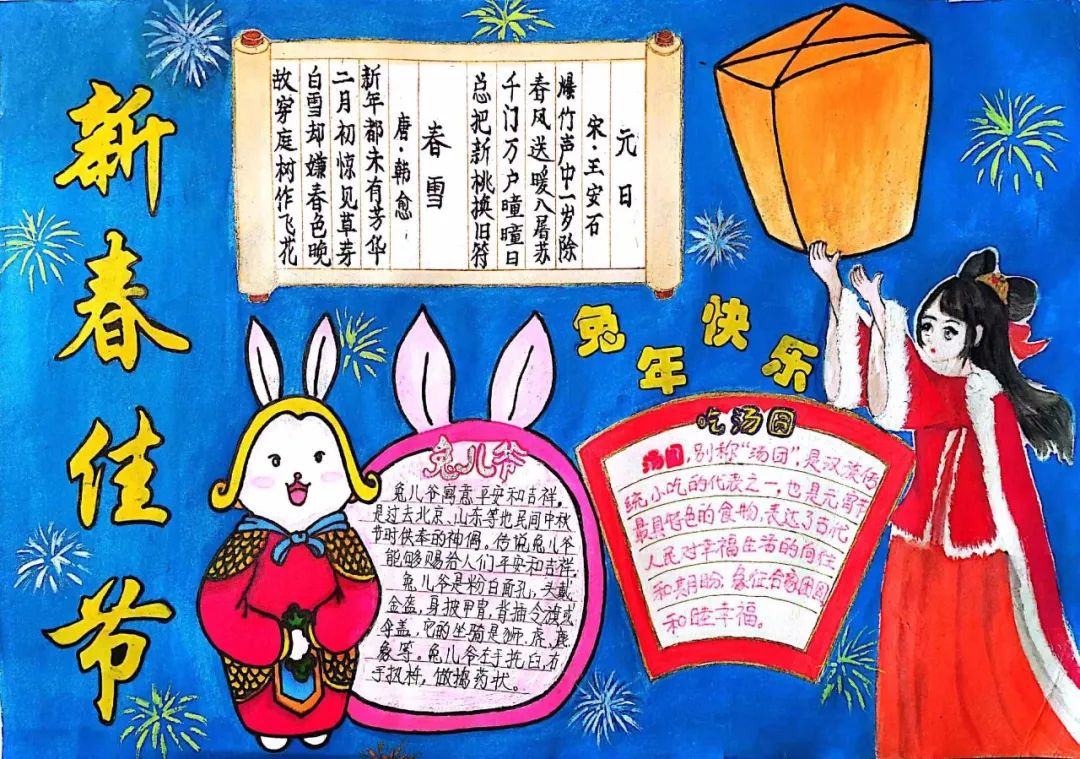 新春佳节
元日
宋·王安石
爆竹声中一岁除
春风送暖入屠苏
千门万户曈曈日
总把新桃换旧符
春雪
唐·韩愈
新年都未有芳华
二月初惊见草芽
白雪却嫌春色晚
故穿庭树作飞花
兔年快乐
兔儿爷
兔儿爷寓意平安和吉祥,
是过去北京、山东等地民间中秋
节时供奉的神偶。传说兔儿爷
能够赐给人们平安和吉祥.
兔儿爷是粉白面孔,头戴
金盔,身披甲胄,背插令旗或
伞盖,它的坐骑是狮、虎、鹿
象等。兔儿爷左手托臼,右
手执杵,做捣药状。
吃汤圆
汤圆,别称“汤团”,是汉族传
统小吃的代表之一,也是元宵节
最具特色的食物,表达了古代
人民对幸福生活的向往
和期盼,象征合家团圆
和睦幸福。